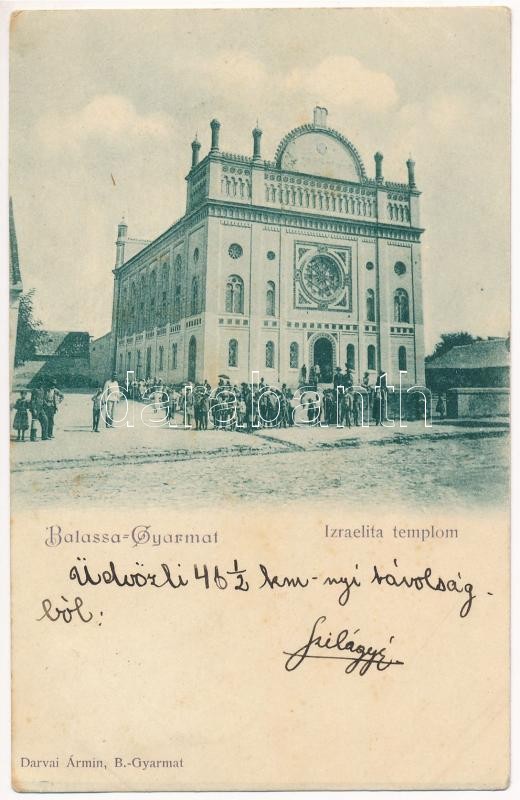 darabanth
Balassa=Gyarmat Izraelita templom
Üdvözli 46 ½ km-nyi távolság-
ból:
Szilágyi
Darvai Ármin, B.-Gyarmat